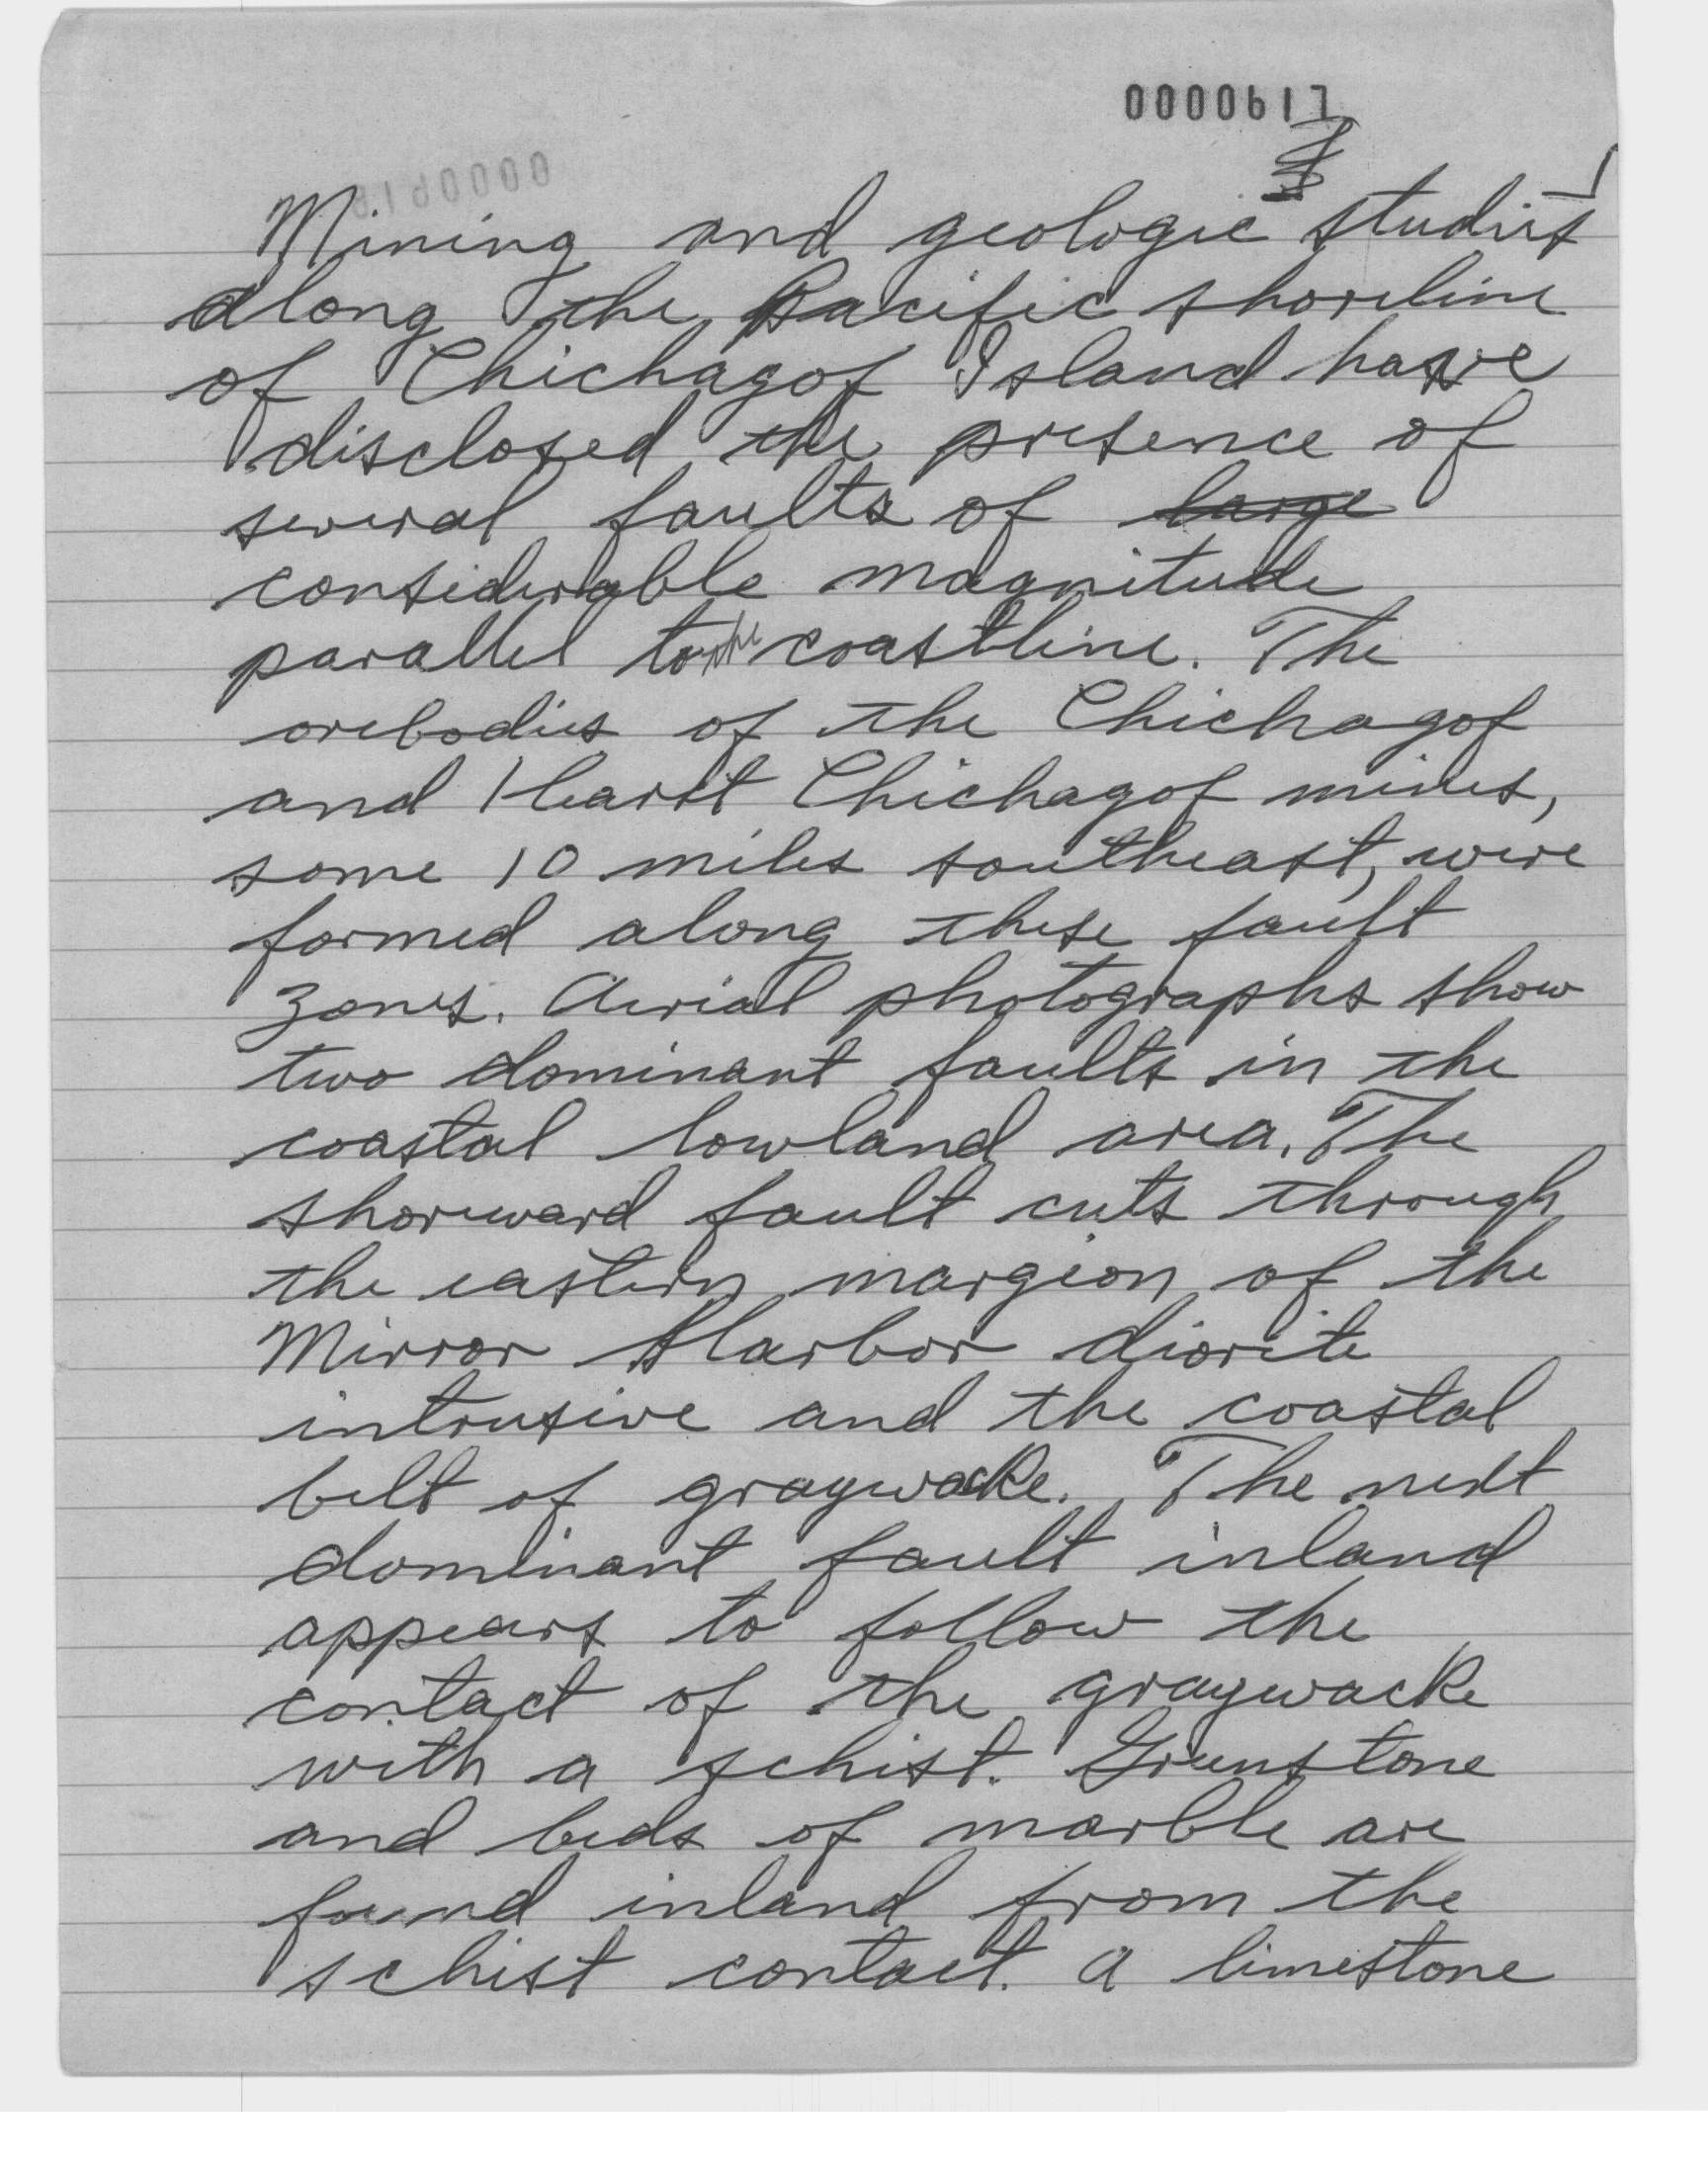 Mining and geologic studies
along the Pacific shoreline
of Chichagof Island have
disclosed the presence of
several faults of large
considerable magnitude
parallel to the coastline. The
orebodies of the Chichagof
and Hearst Chichagof mines,
some 10 miles southeast, were
formed along these fault
zones. Aerial photographs show
two dominant faults in the
coastal lowland area. The
shoreward fault cuts through
the eastern margion of the
Mirror Harbor diorite
intrusive and the coastal
belt of graywacke. The next
dominant fault inland
appears to follow the
contact of the graywacke
with a schist. Greenstone
and beds of marble are
found inland from the
schist contact. A limestone